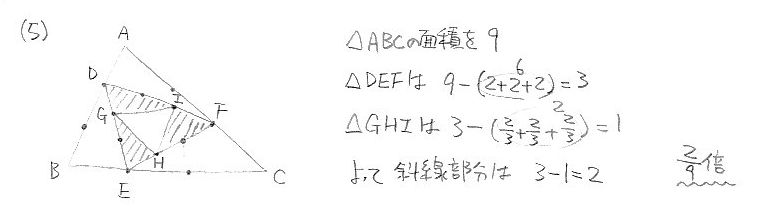 (5)
A
D
I
F
G
B
H
E
C
△ABCの面積を9
△DEFは 9-(2+2+2)=3
6
△GHIは 3-(2/3+2/3+2/3)=1
2
よって 斜線部分は 3-1=2
2/9倍